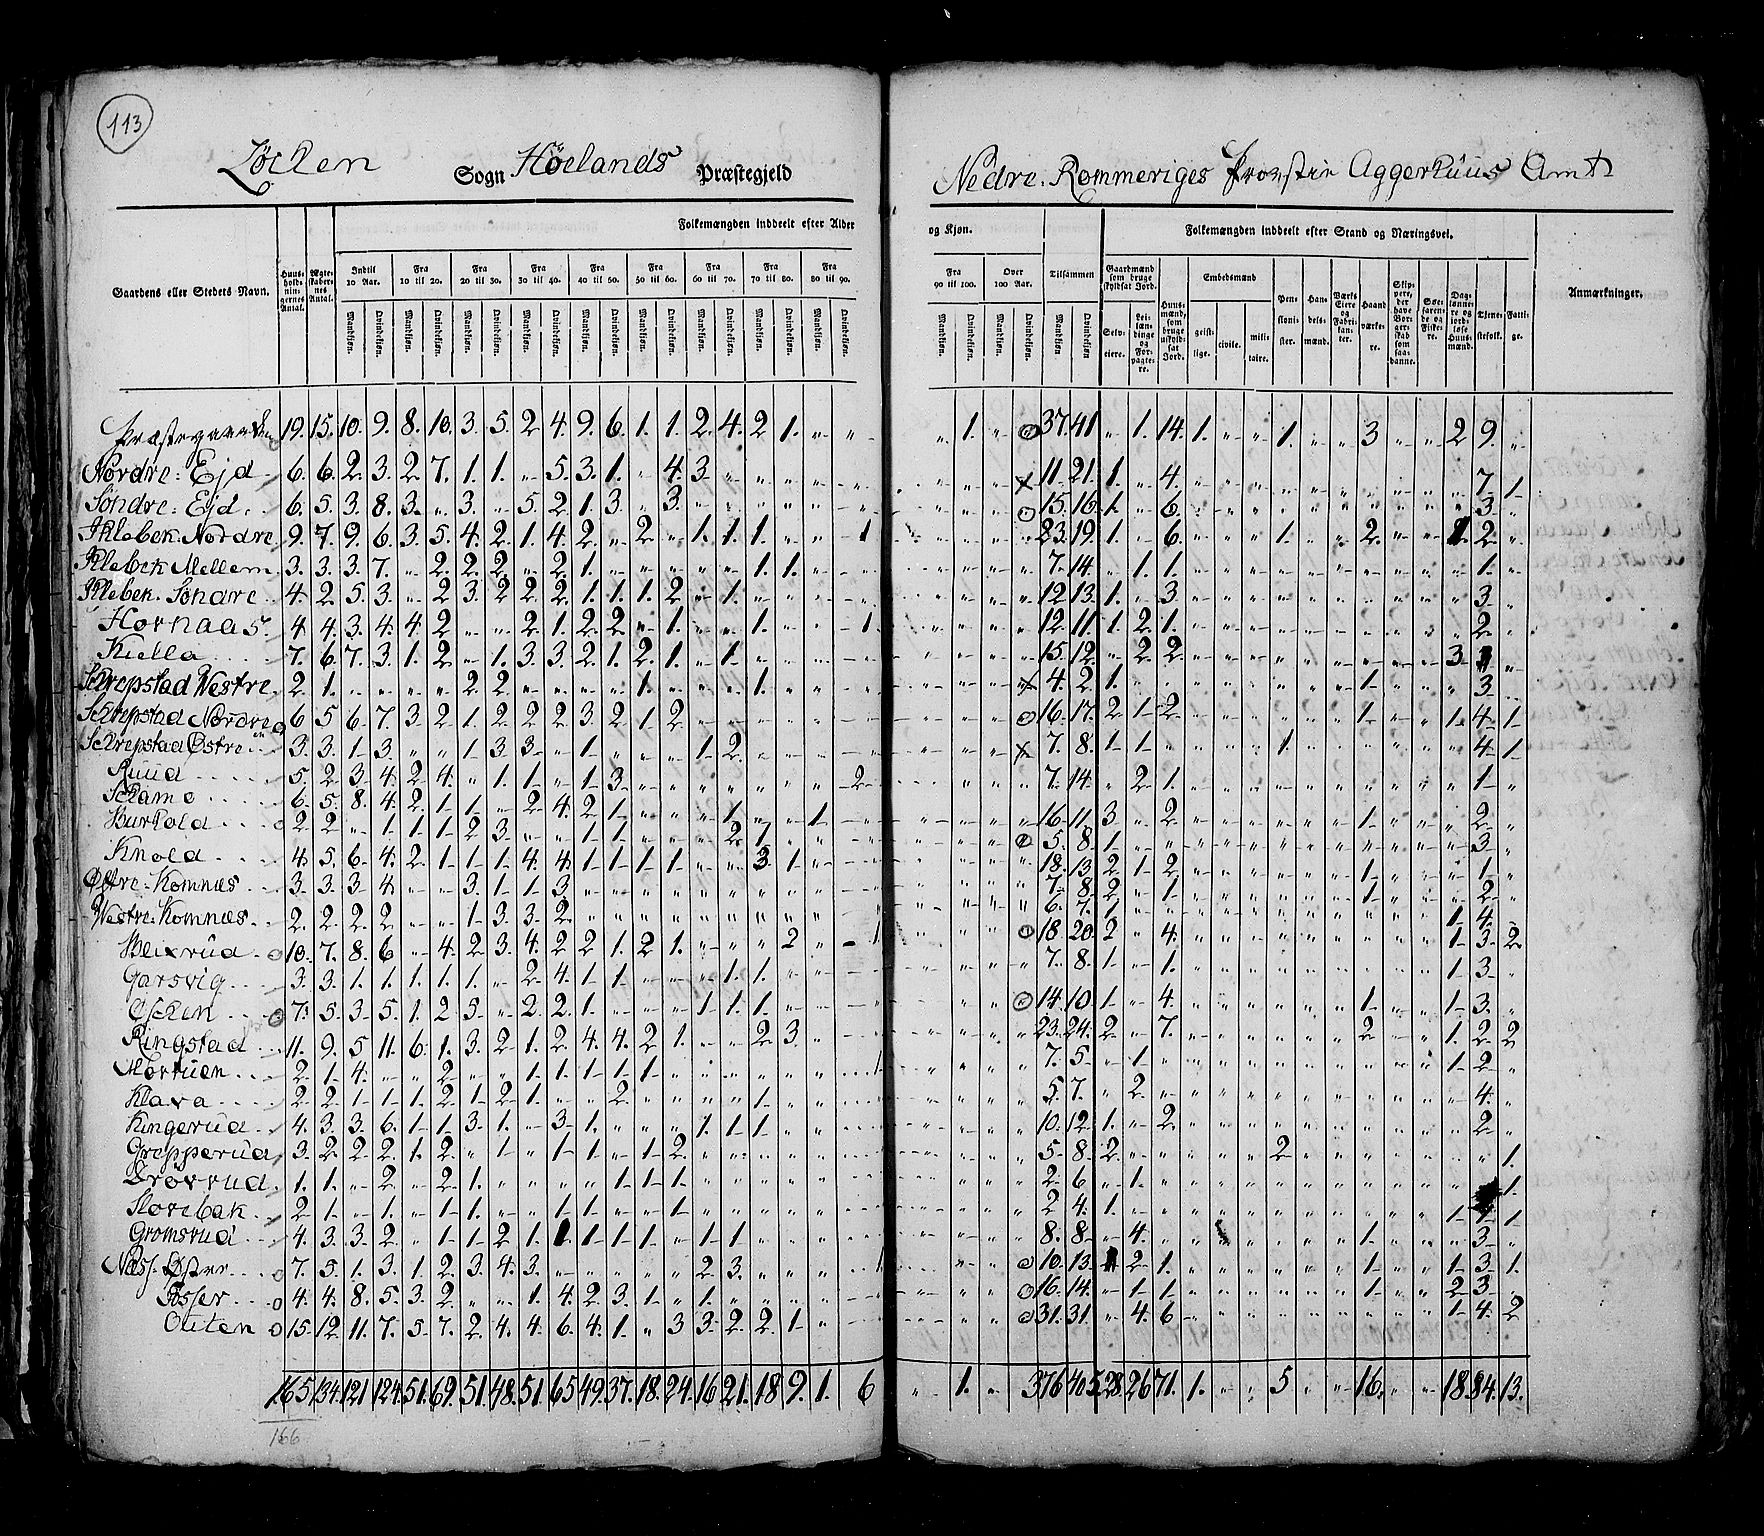 113
Löcken Sogn Höelands Præstegjeld Nedre Rommeriges Prowstie Aggerhuus Amt
Folkemængden inddeelt efter Alder og Kjøn. Folkemængden inddeelt efter Stand og Næringsvei.
Gaardens eller Stedets Navn. Huus-holdnin-gernes Antal. Ægte-skaber-nes Antal. Indtil 10 Aar. Fra 10 til 20. Fra 20 til 30. Fra 30 til 40. Fra 40 til 50. Fra 50 til 60. Fra 60 til 70. Fra 70 til 80. Fra 80 til 90. Fra 90 til 100. Over 100 Aar. Tilsammen Gaardmænd som bruge skyldsat Jord. Huus-mænd, som bruge uskyld-sat Jord. Embedsmænd Pen-sioni-ster. Han-dels-mænd. Værks Eiere og Fabri-kan-ter. Haand værke-re. Skip-pere, der have Bor-ger-skab som saa-danne. Søe-farende og Fiske-re. Dag-lønne-re og jord-løse Huus-mænd. Tjene-stefolk. Fatti-ge. Anmærkninger.
Mandkjøn. Qvindekjøn. Selv-eiere. Lei-læn-dinge og For-pagte-re. geist-lige. civile. mili-taire.
Præstegaarden 19. 15. 10. 9. 8. 10. 3. 5. 2 4. 9. 6. 1. 1. 2. 4. 2 1. „ „ „ 1. „ 37. 41 „ 1. 14. 1. „ „ 1. „ „ 3 „ „ 2 9. „
Nordre: Ejd 6. 6. 2. 3. 2 7. 1. 1. „ 5. 3. 1. „ 4. 3. 11. 21. 1. „ 4. 7. 1
Söndre: Ejd. 6. 5. 3. 8. 3. „ 3. „ 5. 2. 1. 3. „ 3. 15. 16. 1. „ 6. 3.
Klebek Nordre 9. 7. 9. 6. 3. 5. 4. 2. 1. 4. 2. „ 2. „ 1. 1. 1. 1 23. 19. 1. „ 6. 1. 2. 2.
Klebek Mellem 3. 3. 3. 7. „ 2. 2. 2. „ 2. 1. 1. 1. 7. 14. „ 1. 1. 1.
Klebek. Söndre 4. 2. 5. 3. „ 2 3. 2. 2. 2. 1. 1. 1. 2 „ 1. 12 13. 1. „ 3 3.
Hornaas. 4 4. 3. 4. 4. 2 „ „ 2. 1. 2. 2. „ 1. „ „ 1. 1. 12. 11. 1 2. 1. 2.
Kiella 7. 6. 7. 3. 1. 2. „ 1. 3. 3. 2. 1. 2. 1. „ 1. 15. 12. „ 2. 2. 3
Skrepstad Westre. 2. 1. 2. 2. 1. 1. 4. 2. 1. 1. 3.
Skrepstad Nordre 6. 5. 6. 7. 3. 2. 1. 2. 2. 2. 3. 2. 1. 2. 16. 17. 2. 1. 2. 1. 1. 4. 1.
Skrepstad Østre 3. 3. 1. 3. „ „ 1. 3 3. „ 1. 1. 2. 7. 8. 1. 1. 1. 4. 1.
Ruud 5. 2. 3. 4. 2. 4. „ 1. 1. „ 1. 3. 2. 7. 14. „ 2. 1. 1.
6. 5. 8. 4. 2. 1. 1. „ 2. 4. 2. 1. 1. 1. 16. 11. 3. „ 2. 1. 2.
Burhold 2. 2. „ 1. 1. 1. 2. 3. „ „ 1. 1. 2. 5. 8. 1. 3.
Knold 4. 5. 6. 4. 2. 1. 1. 1. 4. 4. 1. 1. 1. 1. „ „ 3. 1. 18. 13. 2. 1. 2. 1. 1.
Østre: Komnæs 3. 3. 3. 4. „ „ 3. 1. 1. 3 7. 8. 2. „ 1. 1. 2.
Westre: Komnæs. 2. 2. 2. 2. „ „ 1. 3. 3. 2. 6. 7. 1. 1. 4.
10. 7. 8. 6 „ 4. 2. 3. 4. 2. 2. 1. 2. 1. „ „ „ 2 „ „ 1 18. 20. 2 „ 4. 1. 3. 2.
Garsvig 3. 3. 1. 1. 1. 1. 1. „ 2. 4. 1. 1. „ „ „ 1. 1. 7. 8. 1. „ 1. 1. 3.
7. 5. 3. 5. 1. 2 5. „ 2. 2. 1. „ „ „ 1. 1. 1. 14. 10. 1. „ 4. 1. 1. 3.
Ringstad 11. 9. 5 11. 6. 1. 3. 2. 1. 2 4. 4. 2 1. „ „ 2 3. 23. 24. 2. „ 7. 2. 1. 2. 2
2. 1. 4. „ „ 2. „ „ 1. 1. 1. 1. 1. 7. 5. „ 1. 1. 2.
Klara 2. 2. 1. 1. 1. 2. 1. 2. 1. „ „ 2. 1. 5. 7. „ 2. 4.
Kingerud 4. 3. 3. 6. 1. 1. 3. 1. „ 3. 1. „ „ „ 1. 1. 1. 10. 12. 1. „ 2. 2.
Grepperud 3. 2. 2. 2. 1. 2. „ 1. „ 1. 1. „ 1. 2. 5. 8. 2. 2. 1.
1. 1. „ 2. „ 2. 1. „ „ „ „ 1. 1. 1. 2. 6. „ 1. 1.
Storebak 2. 1. „ 1. „ 1. „ „ „ 1. 1. „ „ 1. 2. 4. 1. 1. 1. 1
Gromsrud 4. 3. 3. 2. „ 1. 1. 2. 1. 1. 1. 1. „ 1. 1. 8. 8. „ 4. 1. 3.
Næss. Østre 7. 5. 1. 3. 1. 2. 3. 4. 3. 2. 3. 10. 13. 2. 1. 1. 1. 3. 1.
Fosser 4. 4. 8. 5. 3. 2. „ „ 1. 4. 2. 3. 1. „ 1. 16. 14. „ 1. 1. 1. 2. 3.
Outen 15. 12. 11. 7. 5. 7. 2. 4. 4. 6. 4. 1. „ 3 3. 2. 2. 1. „ 31. 31. „ 4. 6. 1. 4. 2
165 134. 121 124. 51. 69. 51. 48. 51. 65 49. 37. 18. 24. 16 21. 18 9. 1. 6 „ 1. „ 376 405 28. 26 71. 1. „ „ 5 „ „ 16. „ „ 18. 84. 13.
166